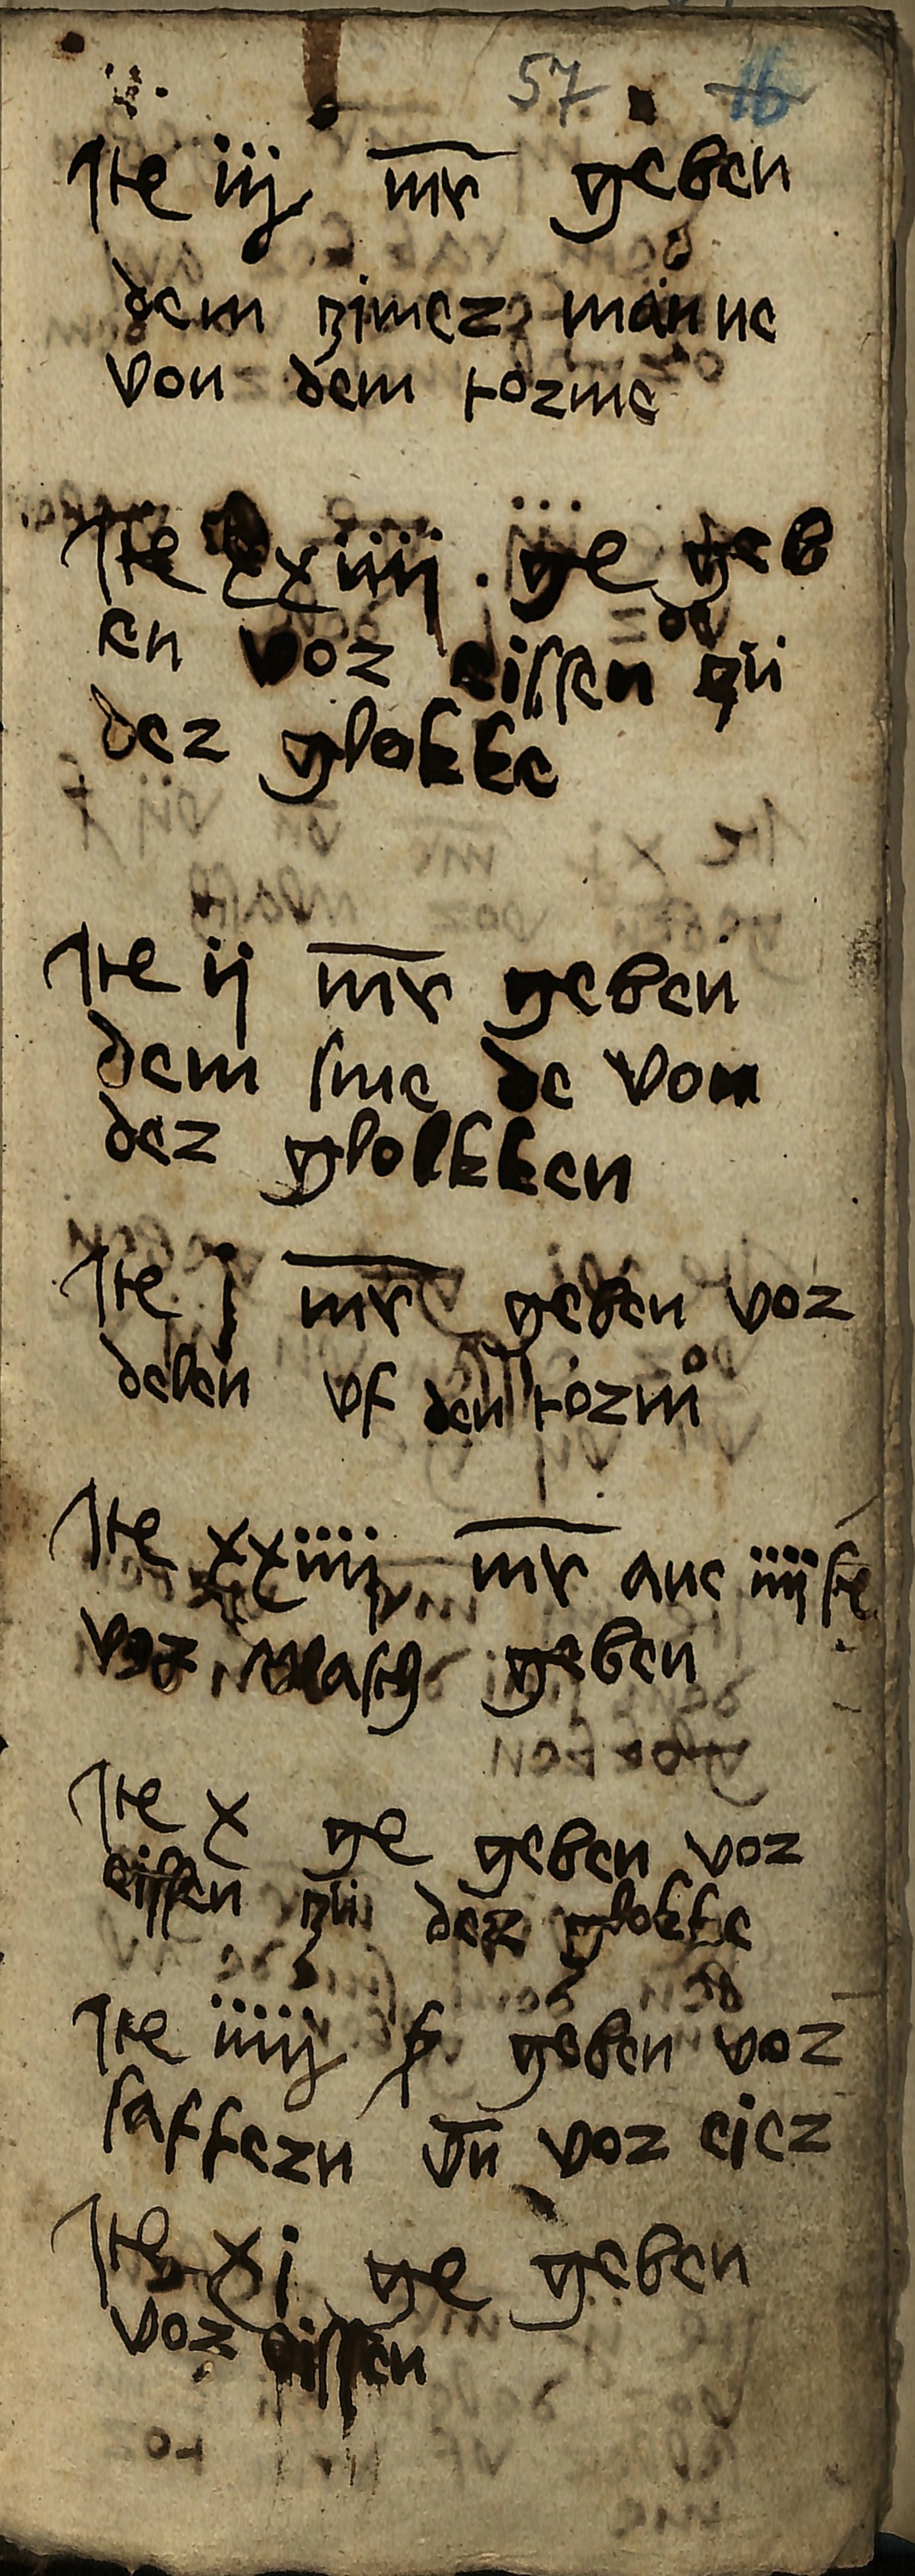 57 16
Ite iij mr geben
dem zimer manne
von dem torme
Ite xxiiij ge geb
en vor eissen zů
der glokke
Ite ij mr geben
dem sme de von
der glokken
Ite j mr geben vor
delen vf den torm
Ite xxiiij mr ane iiij
vor wasch geben
Ite x ge geben vor
eissen zů der glokke
Ite iiij geben vor
saffern vn vor eier
Ite xj ge geben
vor eissen